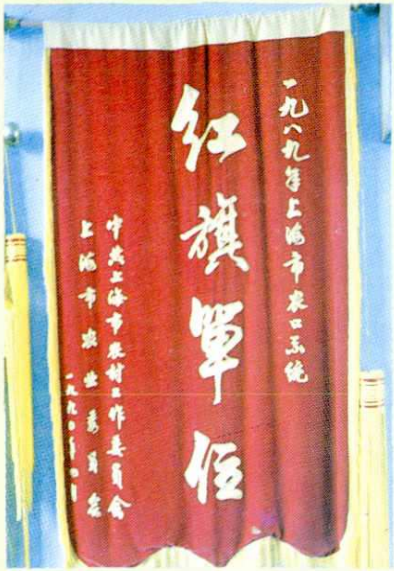 一九八九年上海市农口系统
红旗單位
中共上海市农村工作委員会
上海市农业委員会
一九九〇年四月